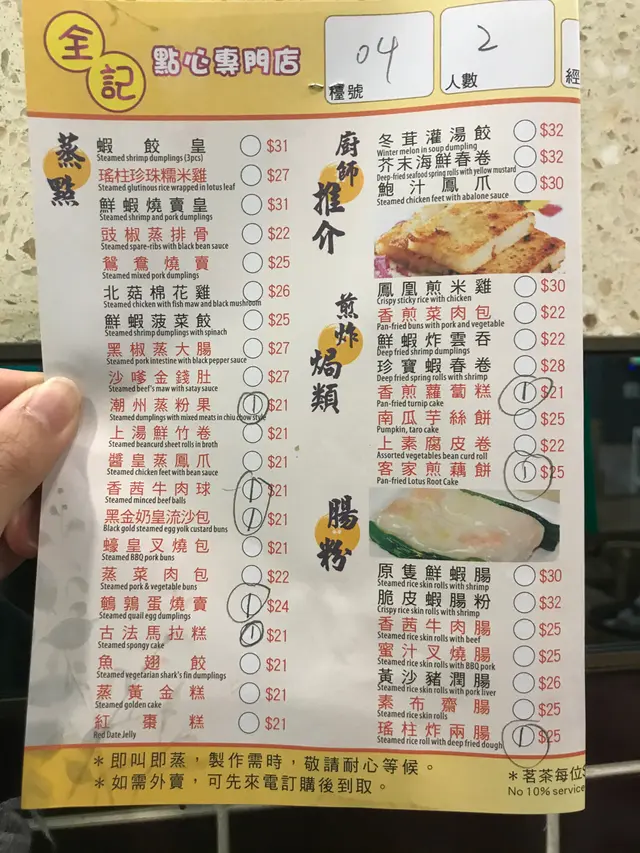 全記
點心專門店
檯號 04
人數 2
經
蒸點
蝦餃皇 $31
Steamed shrimp dumplings (3pcs)
瑤柱珍珠糯米雞 $27
Steamed glutinous rice wrapped in lotus leaf
鮮蝦燒賣皇 $31
Steamed shrimp and pork dumplings
豉椒蒸排骨 $22
Steamed spare-ribs with black bean sauce
鴛鴦燒賣 $25
Steamed mixed pork dumplings
北菇棉花雞 $26
Steamed chicken with fish maw and black mushroom
鮮蝦菠菜餃 $25
Steamed shrimp dumplings with spinach
黑椒蒸大腸 $27
Steamed pork intestine with black pepper sauce
沙嗲金錢肚 $27
Steamed beef's maw with satay sauce
潮州蒸粉果 1 $21
Steamed dumplings with mixed meats in chiu chow style
上湯鮮竹卷 $21
Steamed beancurd sheet rolls in broth
醬皇蒸鳳爪 $21
Steamed chicken feet with bean sauce
香茜牛肉球 1 $21
Steamed minced beef balls
黑金奶皇流沙包 1 $21
Black gold steamed egg yolk custard buns
蠔皇叉燒包 $21
Steamed BBQ pork buns
蒸菜肉包 $22
Steamed pork & vegetable buns
鵪鶉蛋燒賣 1 $24
Steamed quail egg dumplings
古法馬拉糕 1 $21
Steamed spongy cake
魚翅餃 $21
Steamed vegetarian shark's fin dumplings
蒸黃金糕 $21
Steamed golden cake
紅棗糕 $21
Red Date Jelly
廚師推介
冬茸灌湯餃 $32
Winter melon in soup dumpling
芥末海鮮春卷 $32
Deep-fried seafood spring rolls with yellow mustard
鮑汁鳳爪 $30
Steamed chicken feet with abalone sauce
煎炸焗類
鳳凰煎米雞 $30
Crispy sticky rice with chicken
香煎菜肉包 $22
Pan-fried buns with pork and vegetable
鮮蝦炸雲吞 $22
Deep fried shrimp dumplings
珍寶蝦春卷 $28
Deep fried spring rolls with shrimp
香煎蘿蔔糕 1 $21
Pan-fried turnip cake
南瓜芋絲餅 $25
Pumpkin, taro cake
上素腐皮卷 $22
Assorted vegetables bean curd roll
客家煎藕餅 1 $25
Pan-fried Lotus Root Cake
腸粉
原隻鮮蝦腸 $30
Steamed rice skin rolls with shrimp
脆皮蝦腸粉 $32
Crispy rice skin rolls with shrimp
香茜牛肉腸 $25
Steamed rice skin rolls with beef
蜜汁叉燒腸 $25
Steamed rice skin rolls with BBQ pork
黃沙豬潤腸 $26
Steamed rice skin rolls with pork liver
素布齋腸 $25
Steamed rice skin rolls
瑤柱炸兩腸 1 $25
Steamed rice roll with deep fried dough
*即叫即蒸，製作需時，敬請耐心等候。
*如需外賣，可先來電訂購後到取。
*茗茶每位$
No 10% service